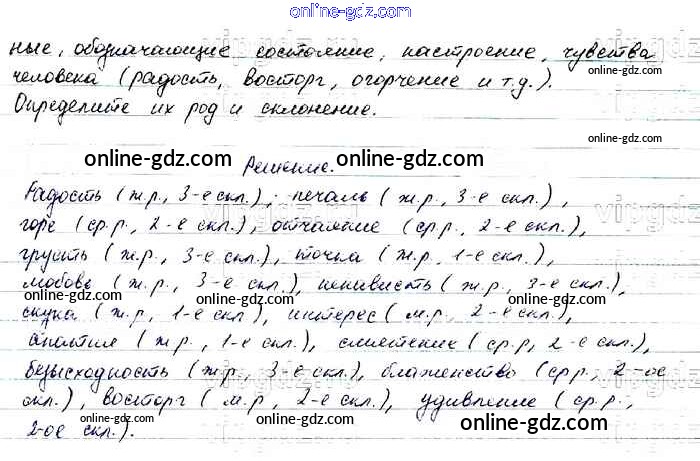 online-gdz.com
ные, обозначающие состояние, настроение, чувства
человека (радость, восторг, огорчение и т.д.).
online-gdz.com online-gdz.com
Определите их род и склонение.
online-gdz.com
online-gdz.com Решение. online-gdz.com
Радость (ж.р., 3-е скл.); печаль (ж.р., 3-е скл.),
vipgdz
горе (ср.р., 2-е скл.), отчаяние (ср.р., 2-е скл.),
online-gdz.com online-gdz.com
грусть (ж.р., 3-е скл.), тоска (ж.р., 1-е скл.),
любовь (ж.р., 3-е скл.), ненависть (ж.р., 3-е скл.),
online-gdz.com online-gdz.com online-gdz.com
скука (ж.р., 1-е скл.), интерес (м.р., 2-е скл.),
апатия (ж.р., 1-е скл.), смятение (ср.р, 2-е скл.),
online-gdz.com online-gdz.com
безысходность (ж.р., 3-е скл.), блаженство (ср.р., 2-ое
vipgdz
скл.), восторг (м.р., 2-е скл.), удивление (ср.р.,
online-gdz.com online-gdz.com
2-ое скл.).
online-gdz.com